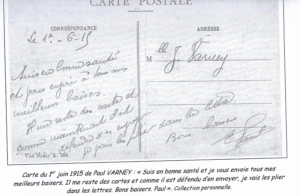 CARTE POSTALE
CORRESPONDANCE
ADRESSE
Le 1er-6-15
Mlle J. Varney
Suis en bonne santé
et je vous envoie tous mes
meilleurs baisers.
Il me reste des cartes et
comme maintenant il est
défendu d'en envoyer
je vais les plier dans les lettres
Bons baisers
Paul
Carte du 1er juin 1915 de Paul VARNEY : « Suis en bonne santé et je vous envoie tous mes
meilleurs baisers. Il me reste des cartes et comme il est défendu d'en envoyer, je vais les plier
dans les lettres. Bons baisers. Paul ». Collection personnelle.